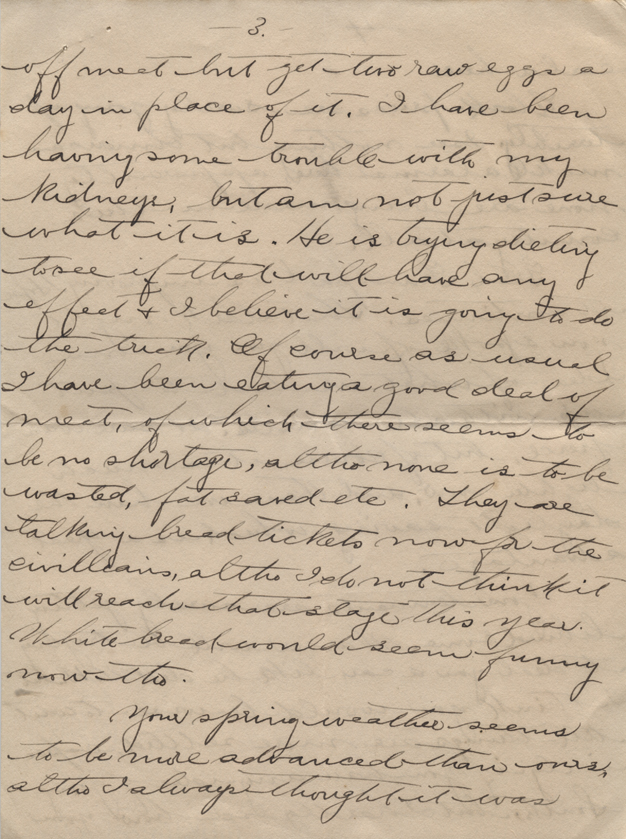 - 3. -
off meat but get two raw eggs a
day in place of it. I have been
having some trouble with my
kidneys, but am not just sure
what it is. He is trying dieting
to see if that will have any
effect & I believe it is going to do
the trick. Of course as usual
I have been eating a good deal of
meat, of which there seems to
be no shortage, altho none is to be
wasted, fat saved etc. They are
talking bread tickets now for the
civilians, altho I do not think it
will reach that stage this year.
White bread would seem funny
now tho.
Your spring weather seems
to be more advanced than ours,
altho I always thought it was